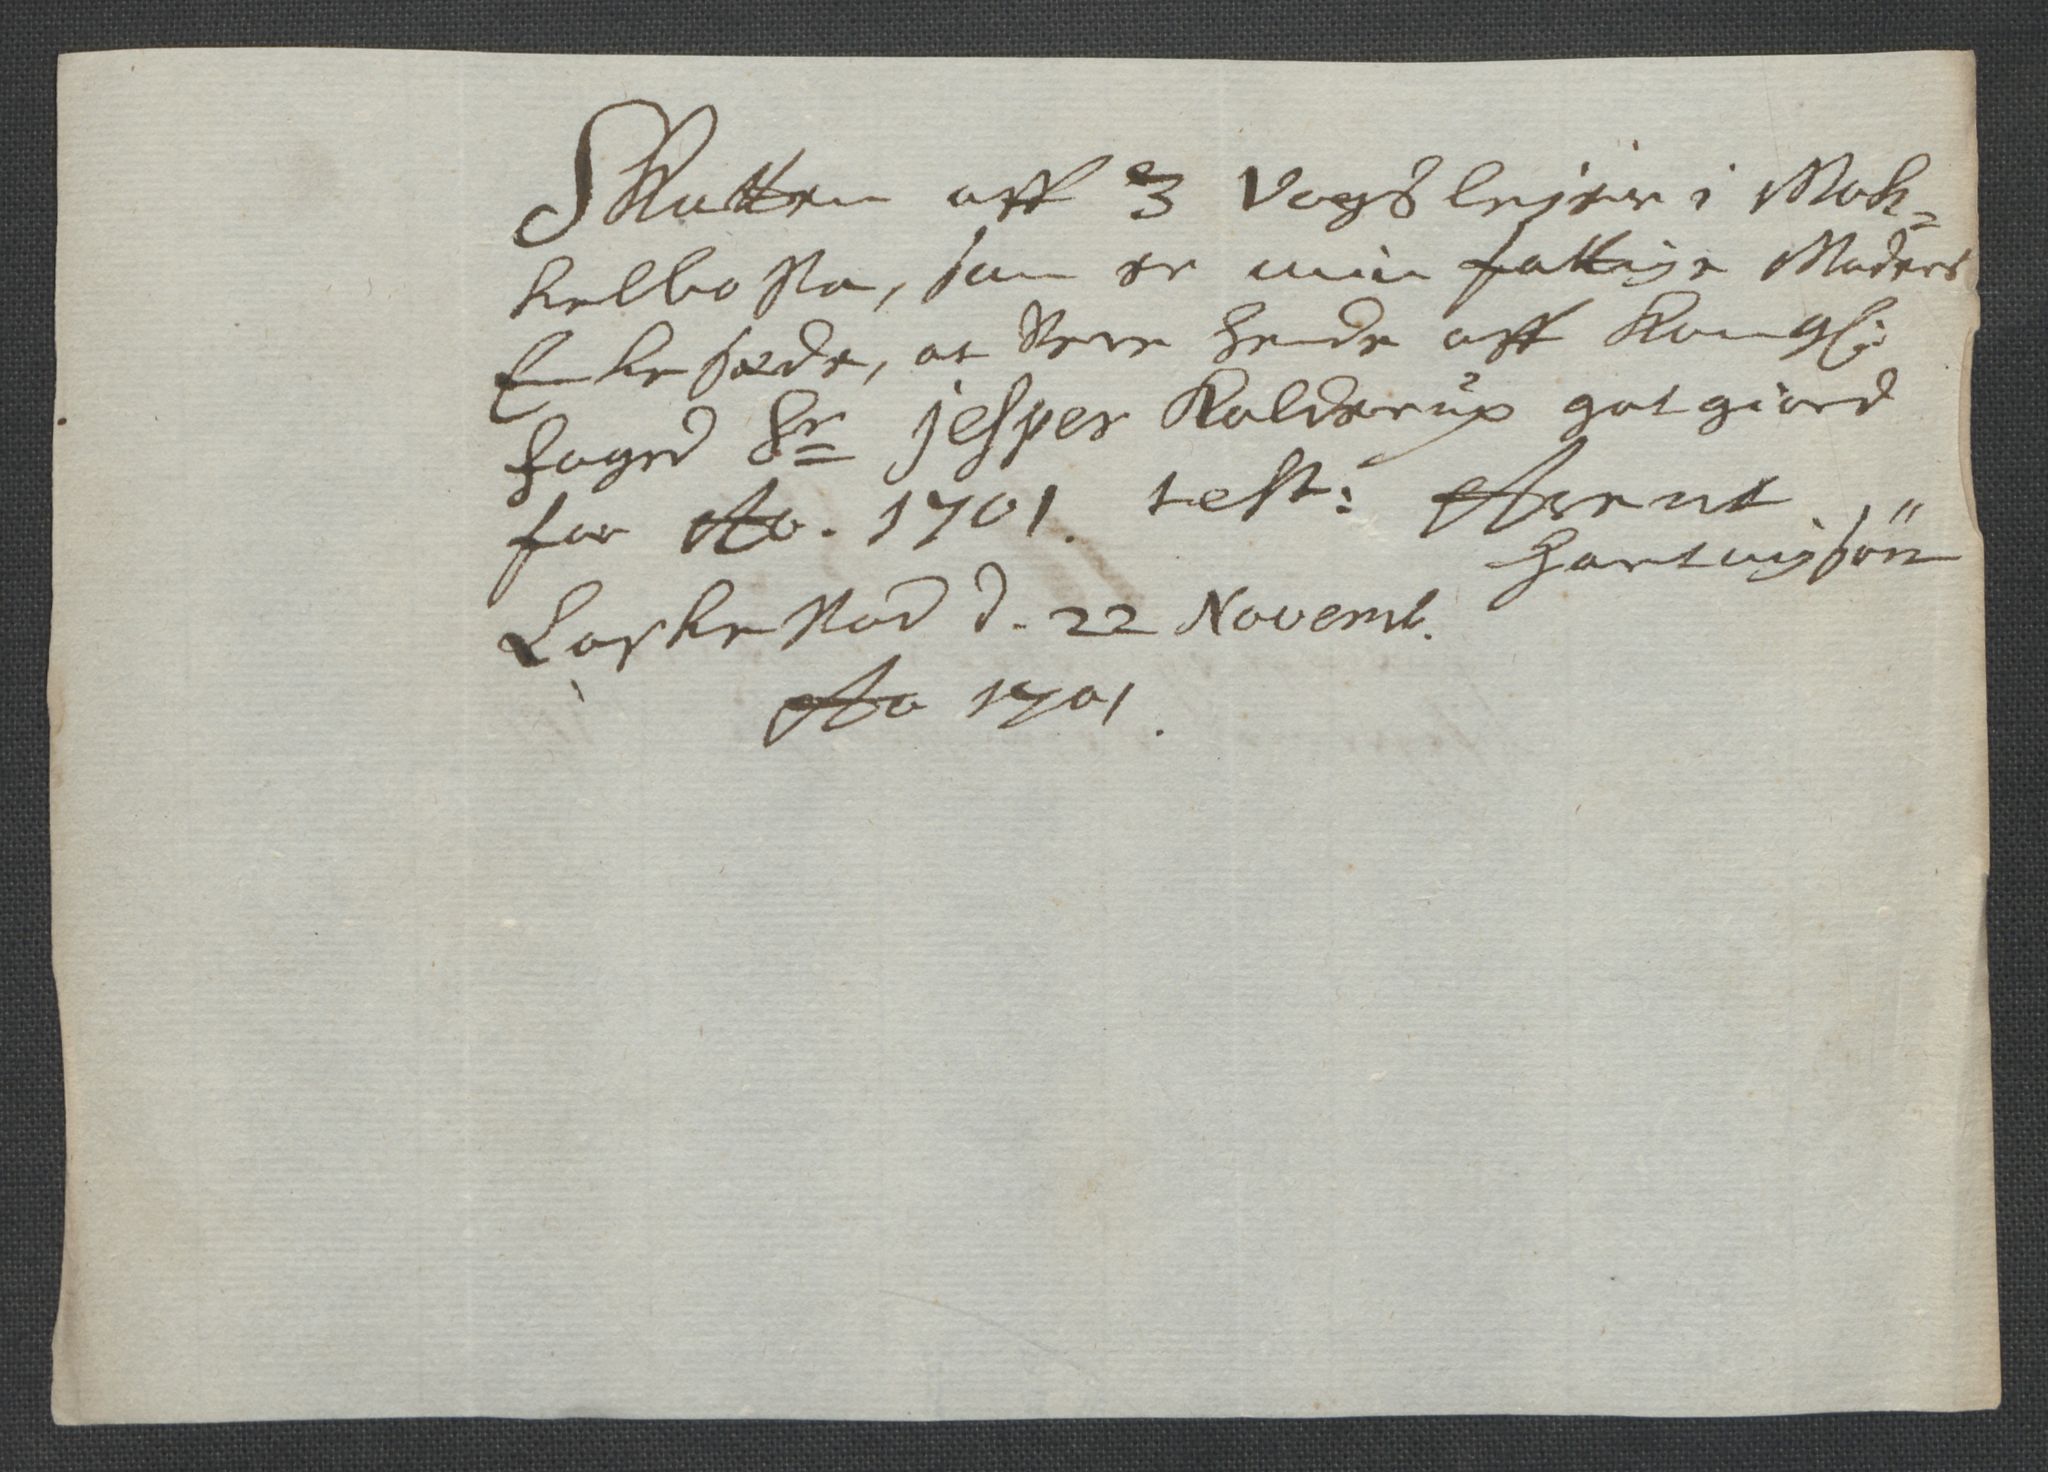 Skatten aff 3 Vogsleyer i Mok=
kelbosta, som er min fattige Moders
Enke sæde, at vere hende aff Kongl:
foged Sr Jesper Kalderup got giord
for Ao. 1701. test: Arent
Hartvigsön
Loskestad d. 22 Novemb.
Ao 1701.